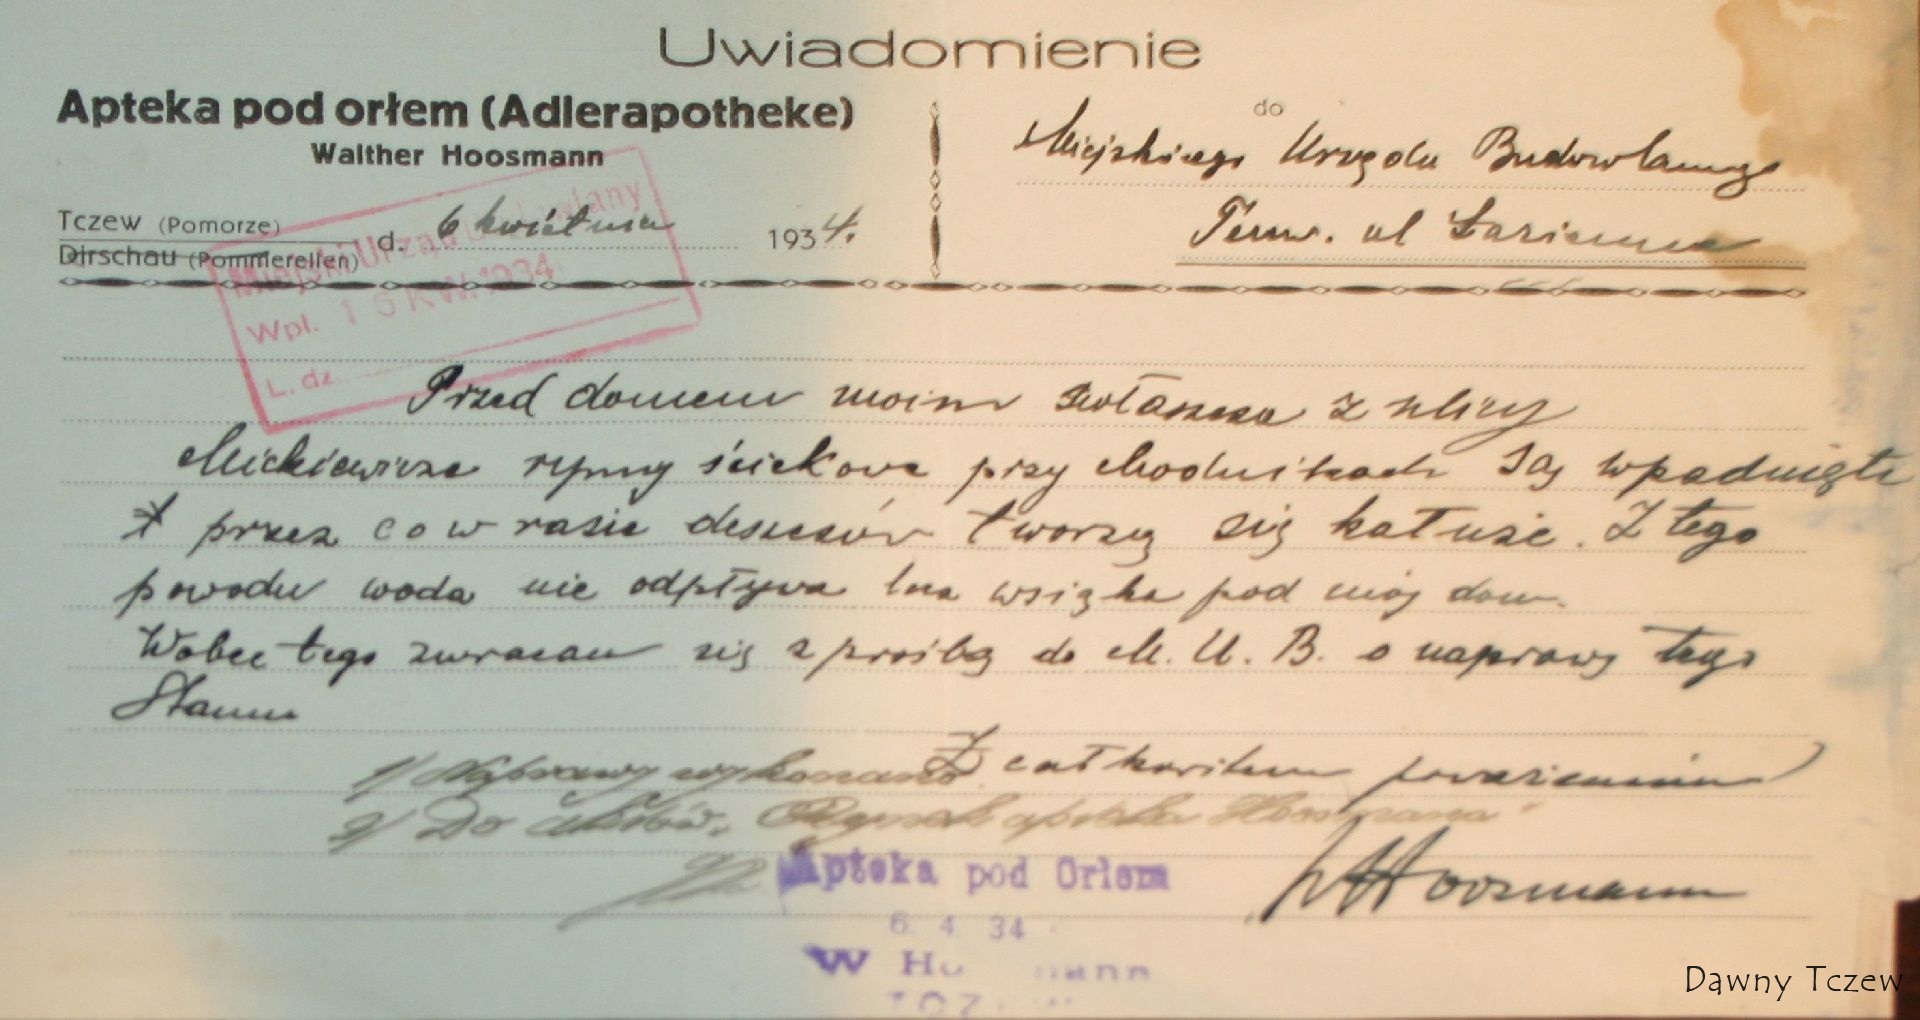 Uwiadomienie
Apteka pod orłem (Adlerapotheke)
Walther Hoosmann
Tczew (Pomorze)
Dirschau (Pommerellen)
d. 6 kwietnia 1934.
do
Miejskiego Urzędu Budowlanego
Tczew. ul Łazienna
Miejski Urząd Budowlany
Wpl. 16 KW. 1934
L. dz.
Przed domem moim zwłaszcza z ulicy
Mickiewicza rynny ściekowe przy chodnikach są wpadnięte
przez co w razie deszczów tworzą się kałuże. Z tego
powodu woda nie odpływa lecz wsiąka pod mój dom.
Wobec tego zwracam się z prośbą do M. U. B. o naprawę tego
Stanu
Z całkowitem poważaniem
1/ Naprawę wykonano.
2/ Do aktów „Rynek apteka Hosmana"
WHoosmann
Apteka pod Orłem
6. 4 34
W Ho mann
Dawny Tczew